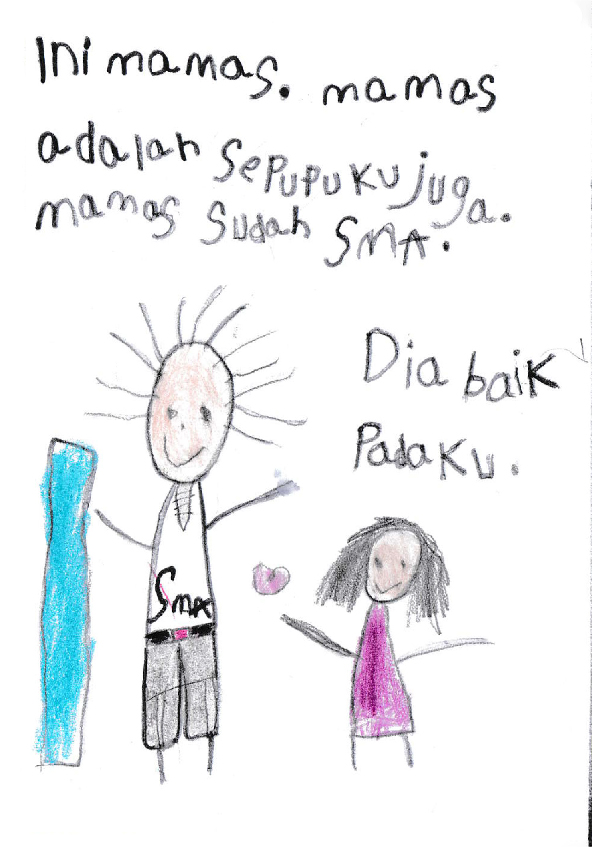 Ini mamas. mamas
adalah sepupuku juga.
mamas sudah SMA.
Dia baik
Padaku.
SMA